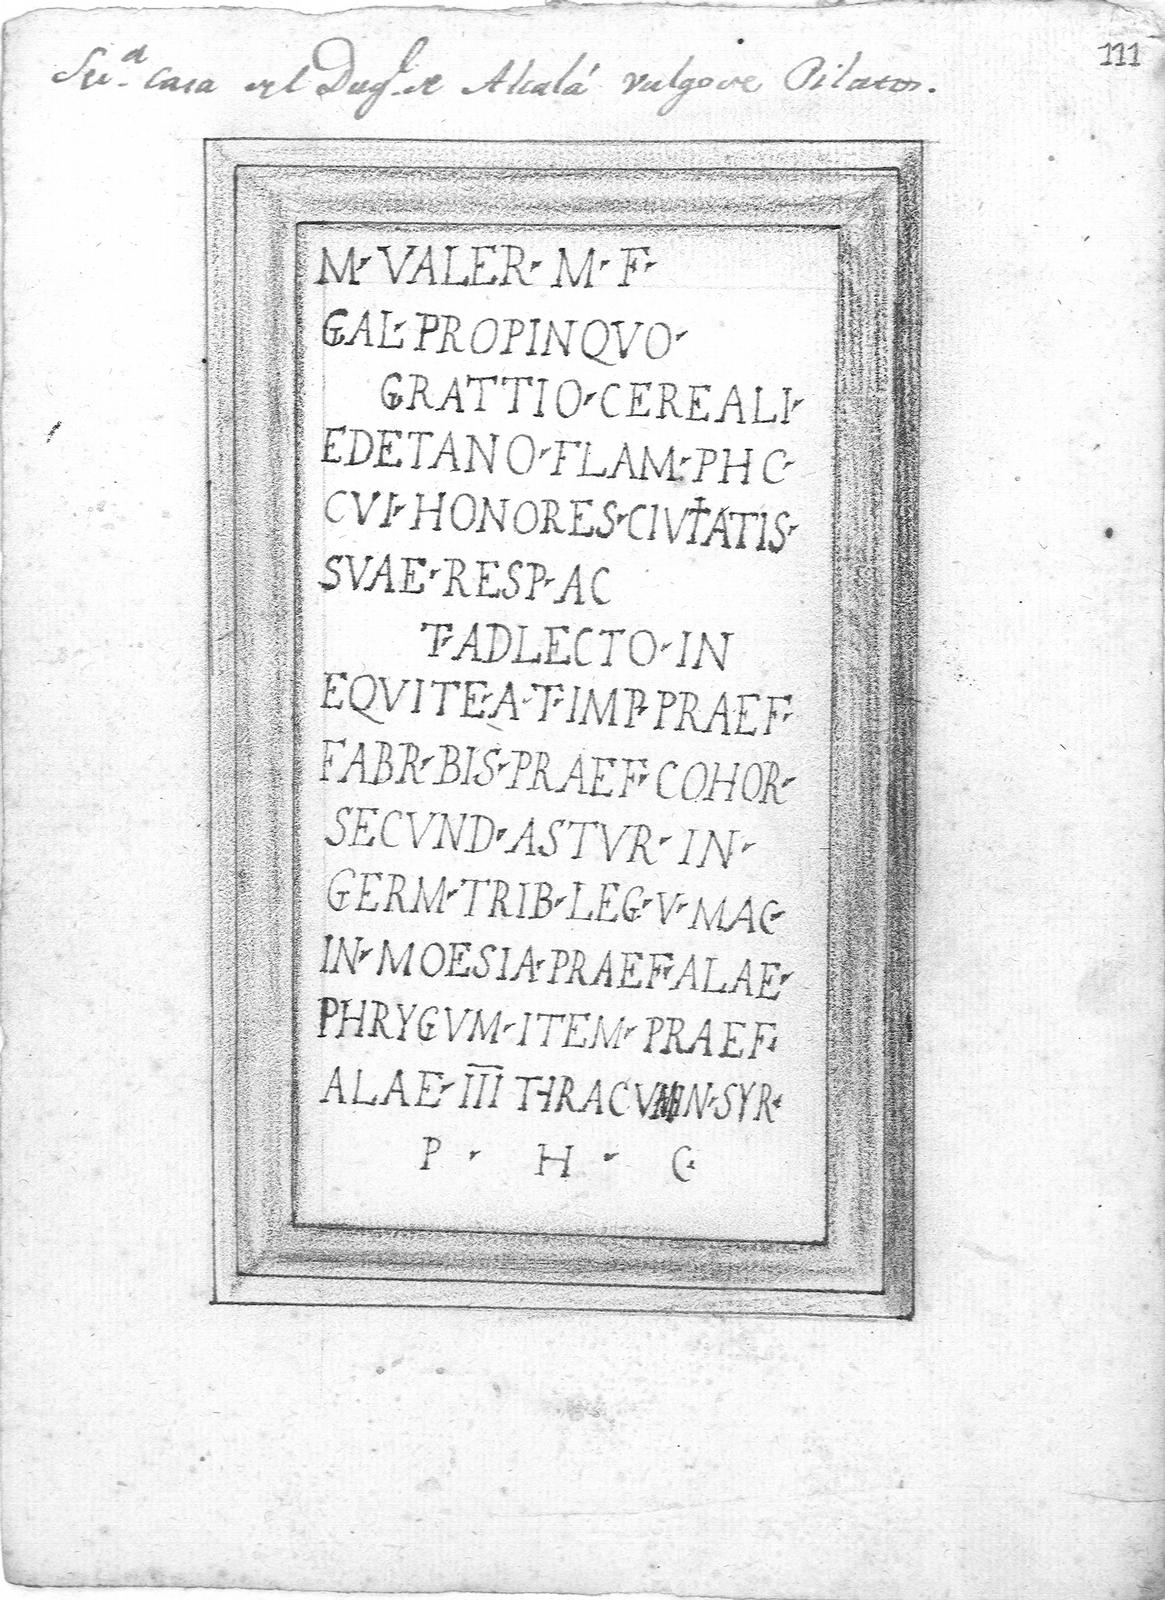 111
Sev.ª Casa del Duq.e de Alcalá vulgo de Pilatos.
M· VALER· M· F·
GAL· PROPINQVO·
GRATTIO· CEREALI·
EDETANO· FLAM· PHC·
CVI· HONORES· CIVITATIS·
SVAE· RESP· AC
T· ADLECTO· IN
EQVITE· A· T· IMP· PRAEF·
FABR· BIS· PRAEF· COHOR·
SECVND· ASTVR· IN·
GERM· TRIB· LEG· V· MAC·
IN· MOESIA· PRAEF· ALAE·
PHRYGVM· ITEM· PRAEF·
ALAE· III THRACVM IN· SYR·
P · H · C·